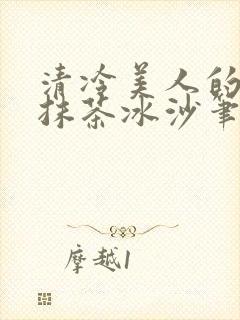 清冷美人的
抹茶冰沙笔
摩越1